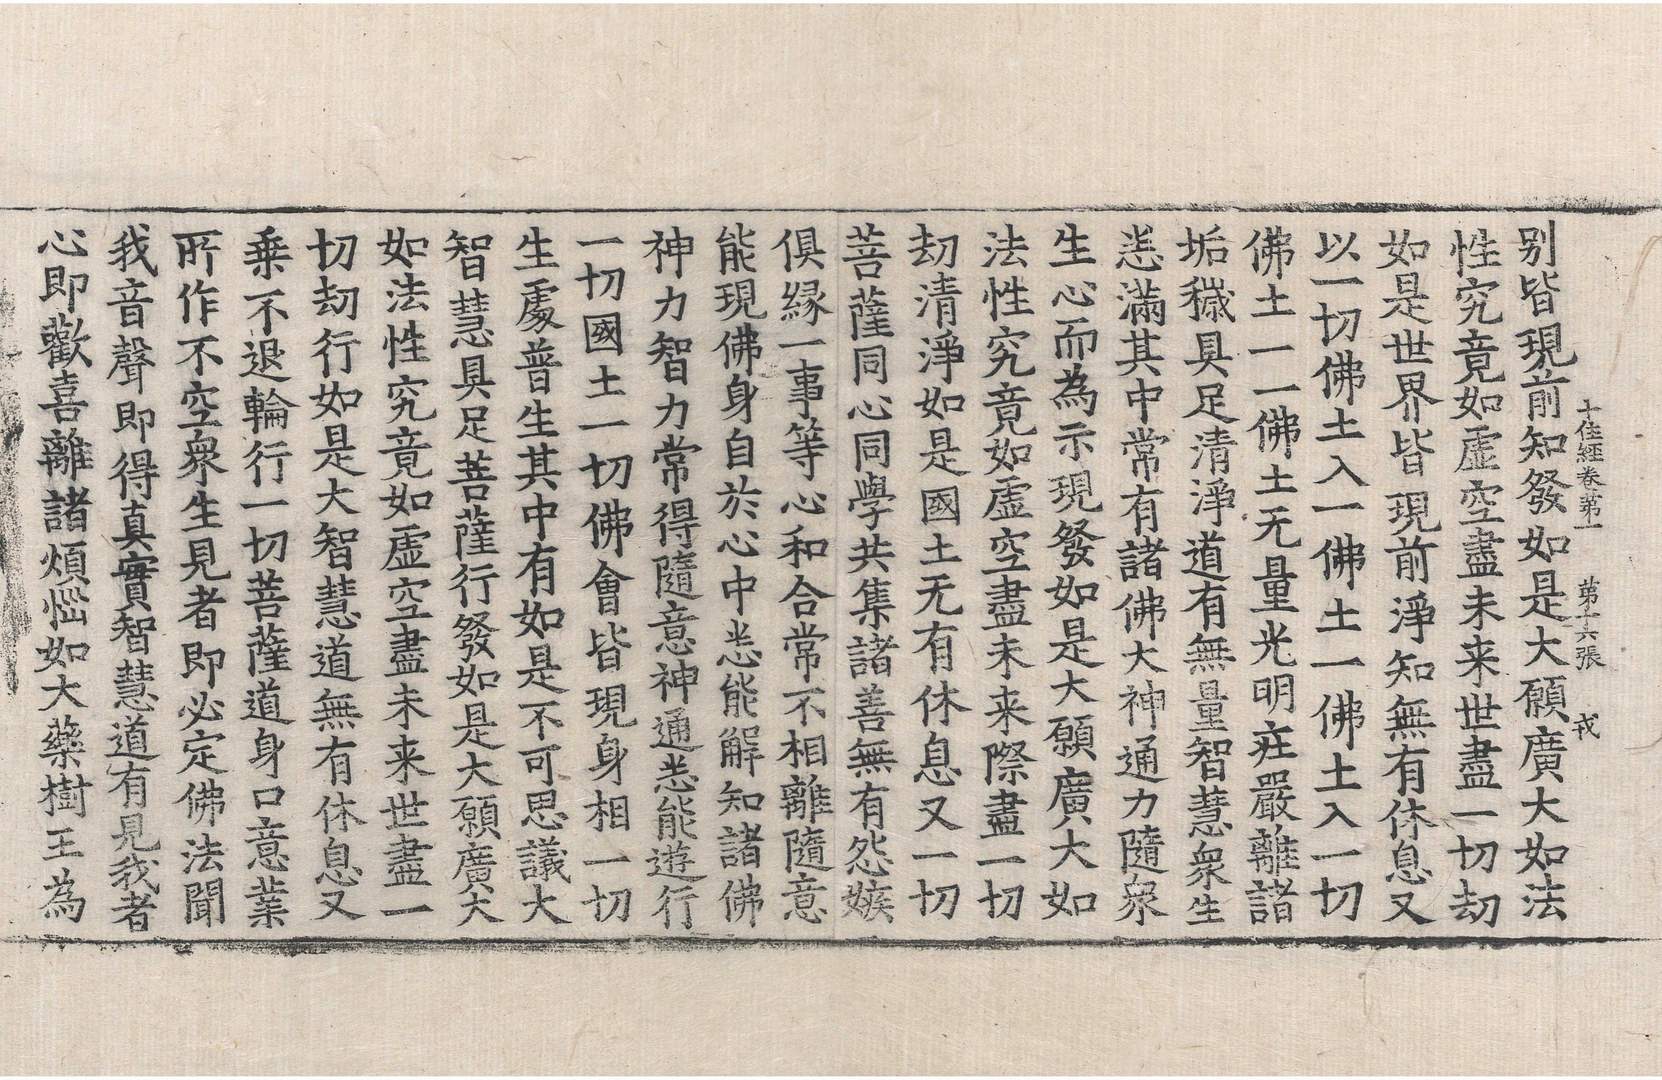 十住經卷第一　第十六張　戎
别皆現前知發如是大願廣大如法
性究竟如虛空盡未来世盡一切劫
如是世界皆現前淨知無有休息又
以一切佛土入一佛土一佛土入一切
佛土一一佛土无量光明莊嚴離諸
垢穢具足清淨道有無量智慧衆生
悉滿其中常有諸佛大神通力隨衆
生心而為示現發如是大願廣大如
法性究竟如虛空盡未来際盡一切
劫清淨如是國土无有休息又一切
菩薩同心同學共集諸善無有怨嫉
俱縁一事等心和合常不相離隨意
能現佛身自於心中悉能解知諸佛
神力智力常得隨意神通悉能遊行
一切國土一切佛會皆現身相一切
生處普生其中有如是不可思議大
智慧具足菩薩行發如是大願廣大
如法性究竟如虛空盡未来世盡一
切劫行如是大智慧道無有休息又
乗不退輪行一切菩薩道身口意業
所作不空衆生見者即必定佛法聞
我音聲即得真實智慧道有見我者
心即歡喜離諸煩惱如大藥樹王為